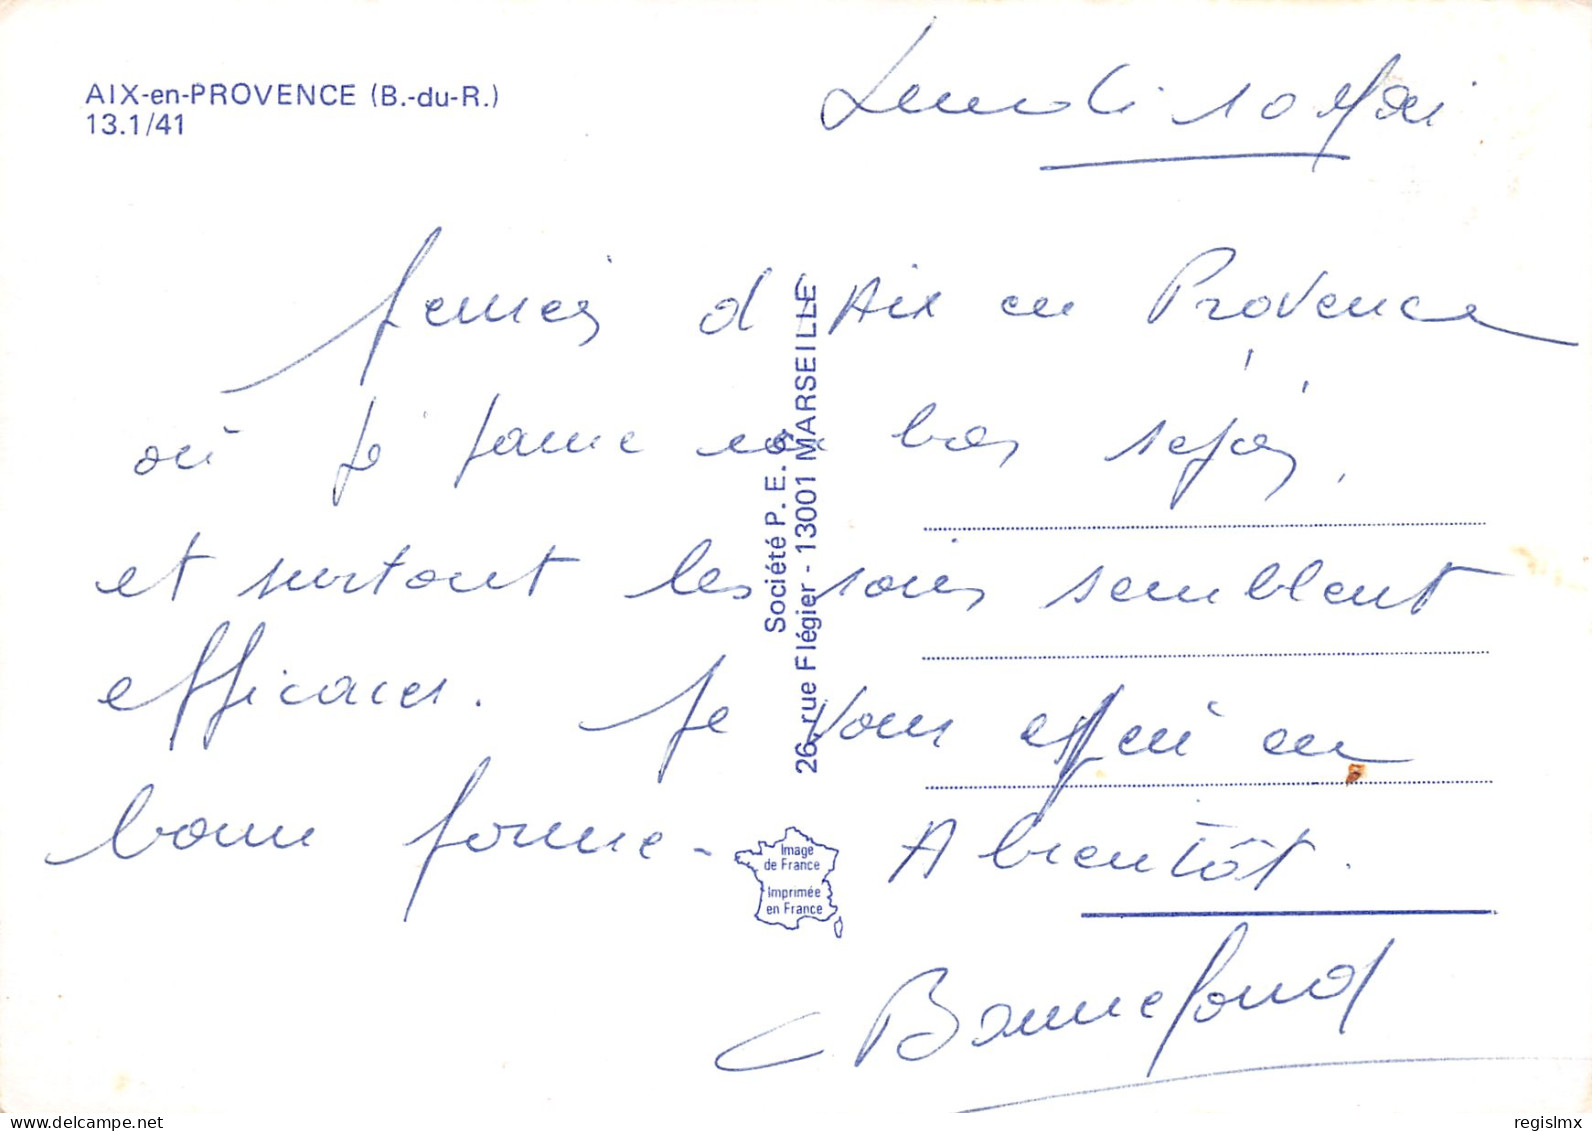 AIX-en-PROVENCE (B.-du-R.)
13.1/41
Lundi 10 Mai
d'Aix en Provence
où je passe un bon séjour,
et surtout les soins semblent
efficaces. Je vous espère en
bonne forme - A bientôt.
Bonnefond
Société P. E. S.
26, rue Flégier - 13001 MARSEILLE
Image
de France
Imprimée
en France
www.delcampe.net
regislmx